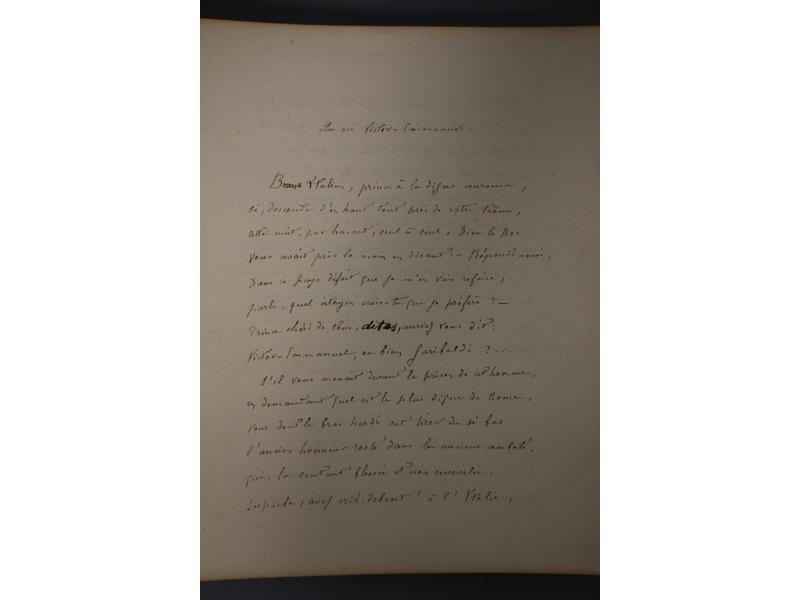 Au roi Victor-Emmanuel.
Brave Italien, prince à la digne couronne,
si, descendu d'en haut tout près de votre trône,
cette nuit, par hasard, seul à seul, Dieu le Roi
vous avait pris la main en disant: – Réponds-moi,
Dans ce pays défait que je m'en vais refaire,
parle, quel citoyen crois-tu que je préfère? –
Prince chéri de tous, dites, auriez vous dit:
Victor-Emmanuel, ou bien Garibaldi?
S'il vous menait devant la prison de cet homme,
en demandant quel est le plus digne de Rome,
vous dont le bras hardi sut tirer de si bas
l'ancien honneur resté dans les anciens combats,
qui, la sentant blessée et non ensevelie,
superbe, avez crié: debout! à l'Italie,